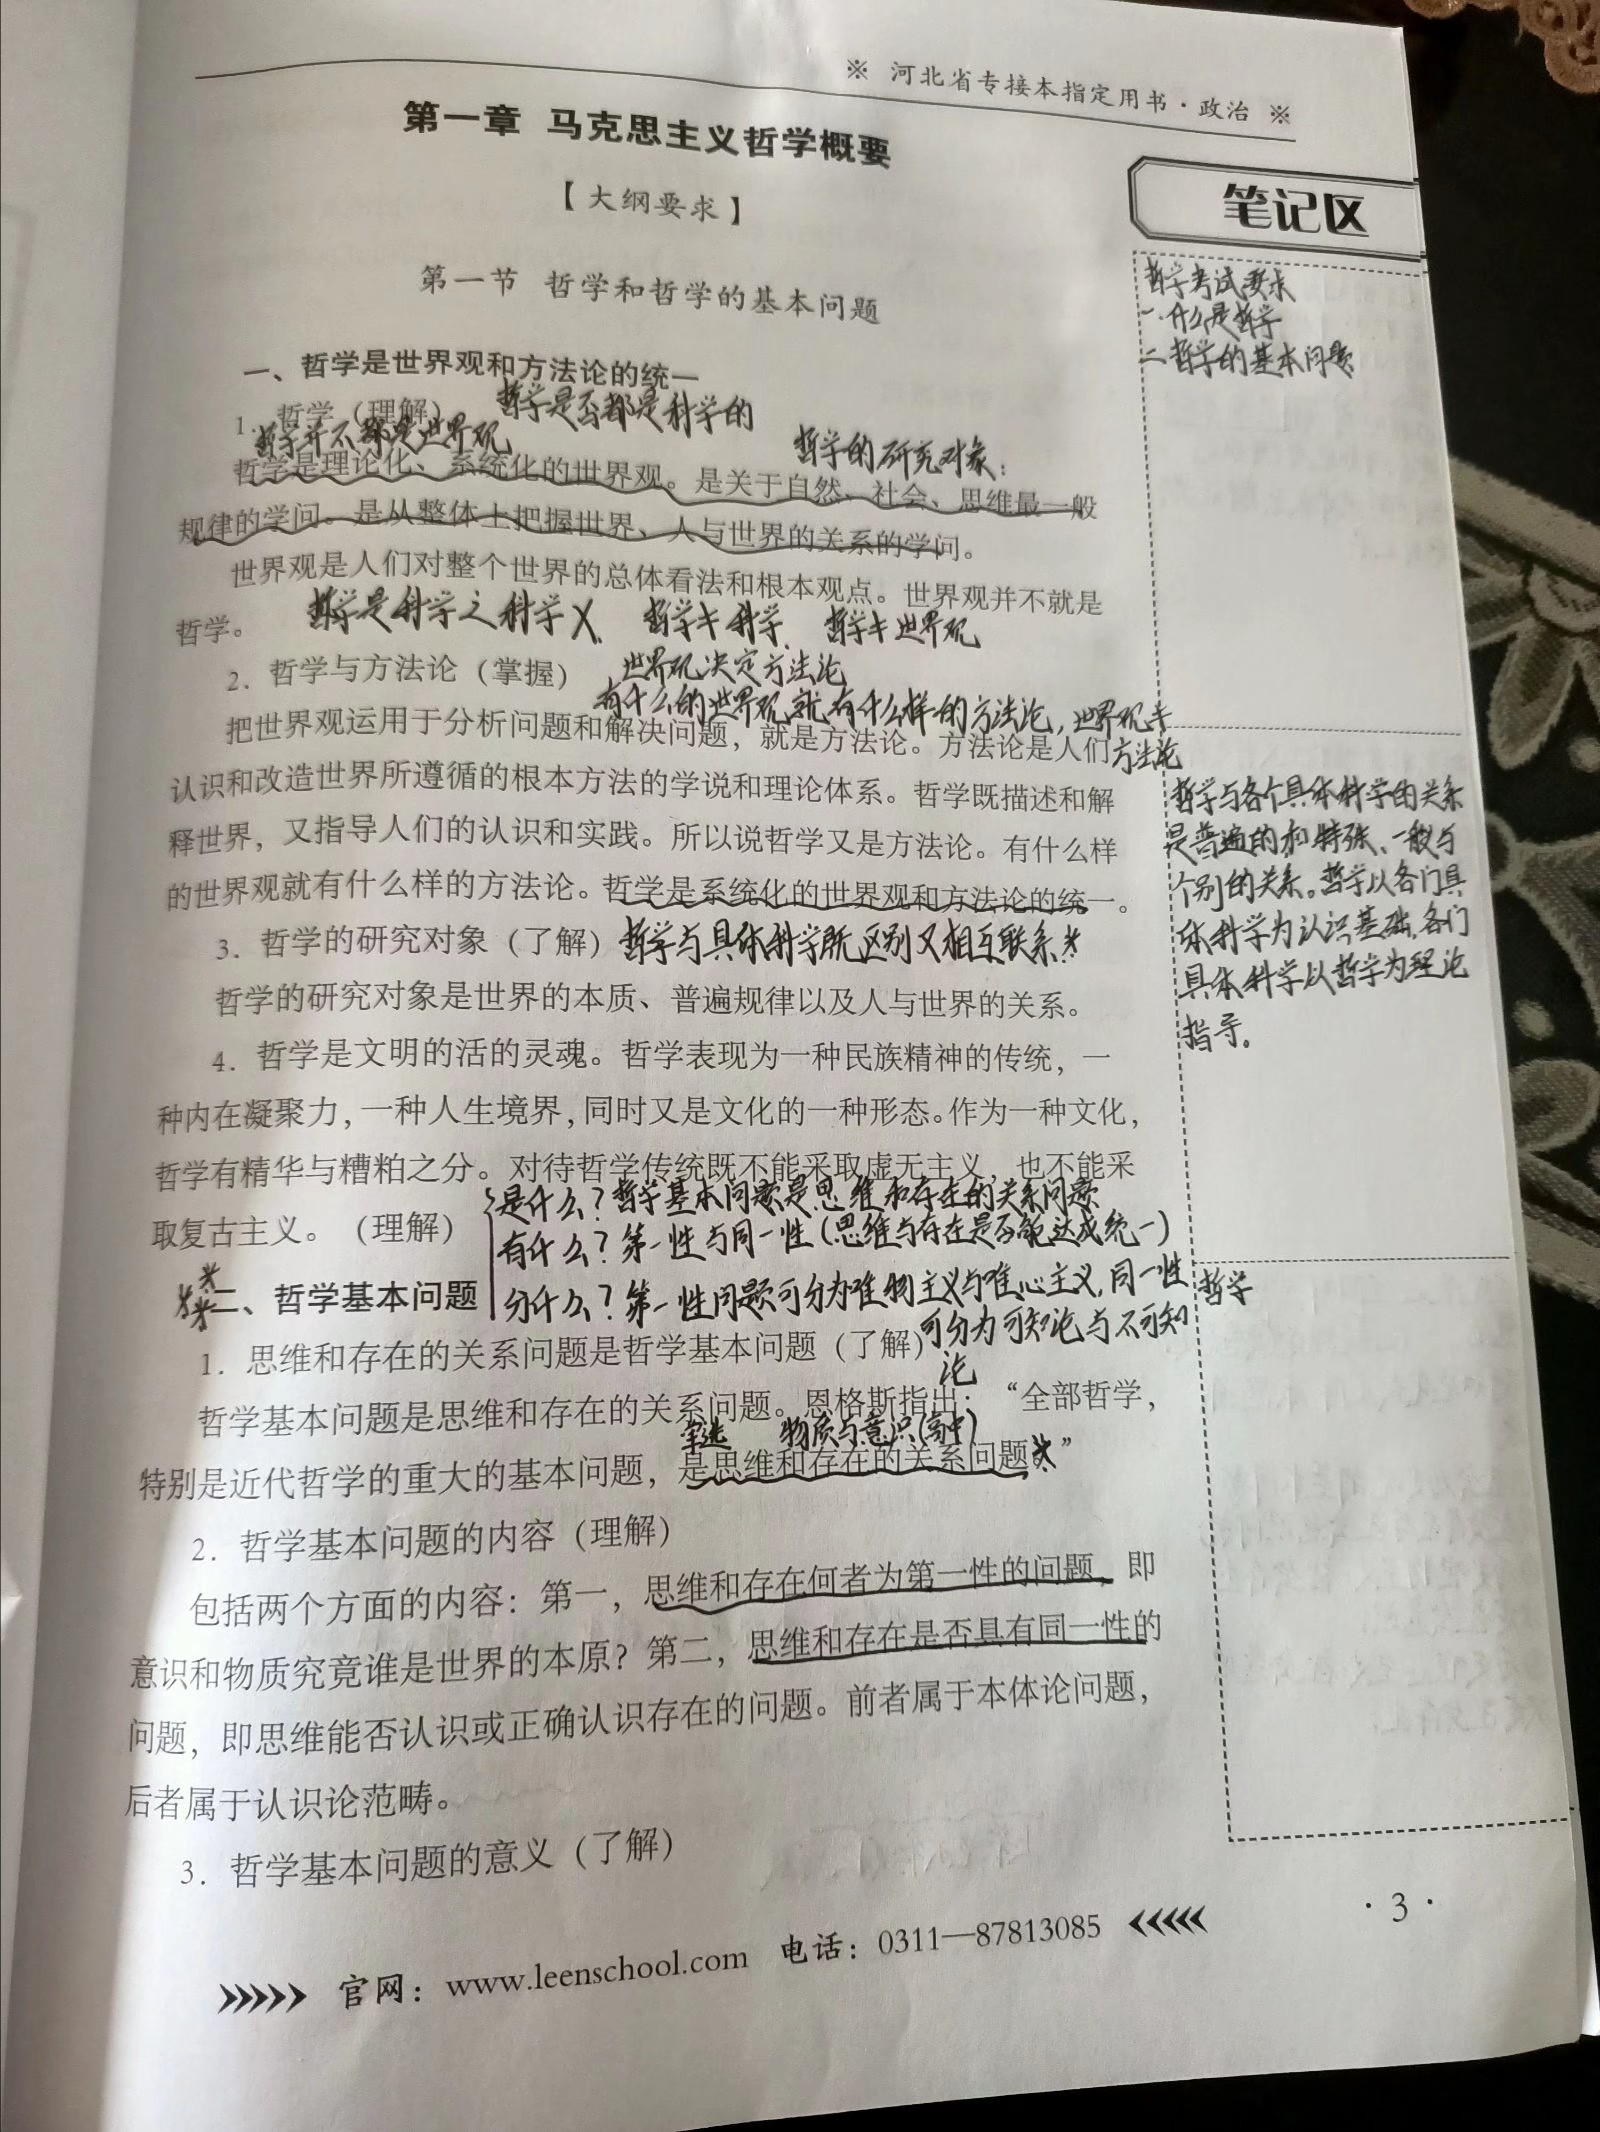 ※ 河北省专接本指定用书·政治 ※
第一章 马克思主义哲学概要
【大纲要求】
笔记区
第一节 哲学和哲学的基本问题
哲学考试要求
一.什么是哲学
二哲学的基本问题
一、哲学是世界观和方法论的统一
1. 哲学（理解） 哲学是否都是科学的
哲学并不都是世界观 哲学的研究对象：
哲学是理论化、系统化的世界观。是关于自然、社会、思维最一般
规律的学问。是从整体上把握世界、人与世界的关系的学问。
世界观是人们对整个世界的总体看法和根本观点。世界观并不就是
哲学。 哲学是科学之科学X. 哲学≠科学. 哲学≠世界观
2. 哲学与方法论（掌握） 世界观决定方法论
有什么的世界观就有什么样的方法论，世界观≠
方法论
把世界观运用于分析问题和解决问题，就是方法论。方法论是人们
认识和改造世界所遵循的根本方法的学说和理论体系。哲学既描述和解
释世界，又指导人们的认识和实践。所以说哲学又是方法论。有什么样
的世界观就有什么样的方法论。哲学是系统化的世界观和方法论的统一。
哲学与各个具体科学的关系
是普遍的和特殊、一般与
个别的关系。哲学以各门具
体科学为认识基础,各门
具体科学以哲学为理论
指导。
3. 哲学的研究对象（了解） 哲学与具体科学既区别又相互联系*
哲学的研究对象是世界的本质、普遍规律以及人与世界的关系。
4. 哲学是文明的活的灵魂。哲学表现为一种民族精神的传统，一
种内在凝聚力，一种人生境界，同时又是文化的一种形态。作为一种文化，
哲学有精华与糟粕之分。对待哲学传统既不能采取虚无主义，也不能采
取复古主义。（理解）
是什么？哲学基本问题是思维和存在的关系问题
有什么？第一性与同一性(思维与存在是否能达成统一)
分什么？第一性问题可分为唯物主义与唯心主义，同一性
可分为可知论与不可知
论
哲学
***二、哲学基本问题
1. 思维和存在的关系问题是哲学基本问题（了解）
哲学基本问题是思维和存在的关系问题。恩格斯指出：“全部哲学，
单选 物质与意识(高中)
特别是近代哲学的重大的基本问题，是思维和存在的关系问题*”
2. 哲学基本问题的内容（理解）
包括两个方面的内容：第一，思维和存在何者为第一性的问题，即
意识和物质究竟谁是世界的本原？第二，思维和存在是否具有同一性的
问题，即思维能否认识或正确认识存在的问题。前者属于本体论问题，
后者属于认识论范畴。
3. 哲学基本问题的意义（了解）
官网：www.leenschool.com 电话：0311—87813085
·3·